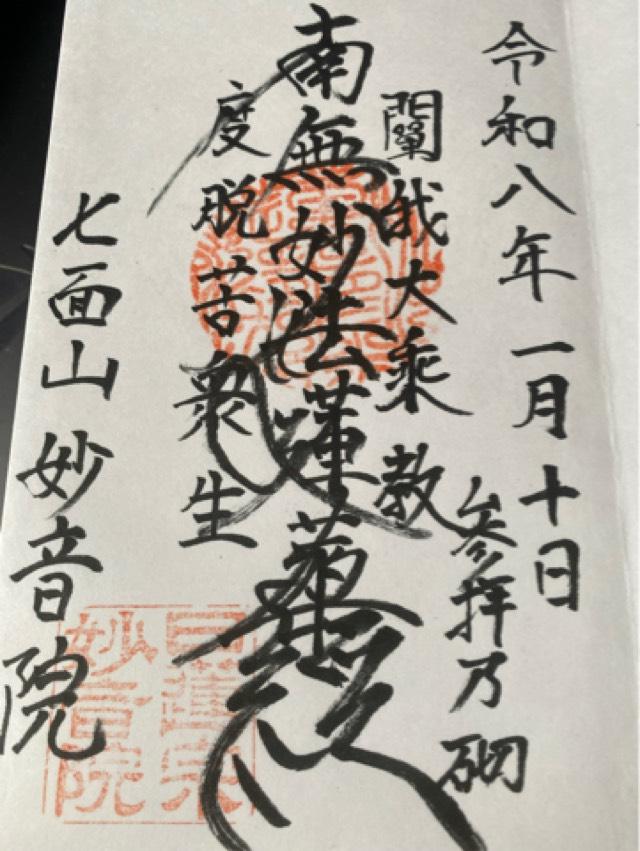 令和八年一月十日
参拝乃砌
闡我大乗教
南無妙法蓮華経
度脱苦衆生
七面山 妙音院
日蓮宗
妙音院